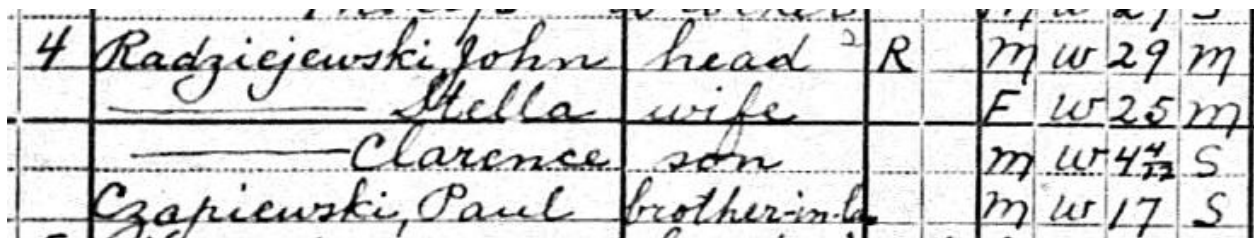 4 Radziejewski, John head 2 R M W 29 M
Stella wife F W 25 M
Clarence son M W 4 4/12 S
Czapiewski, Paul brother-in-la M W 17 S